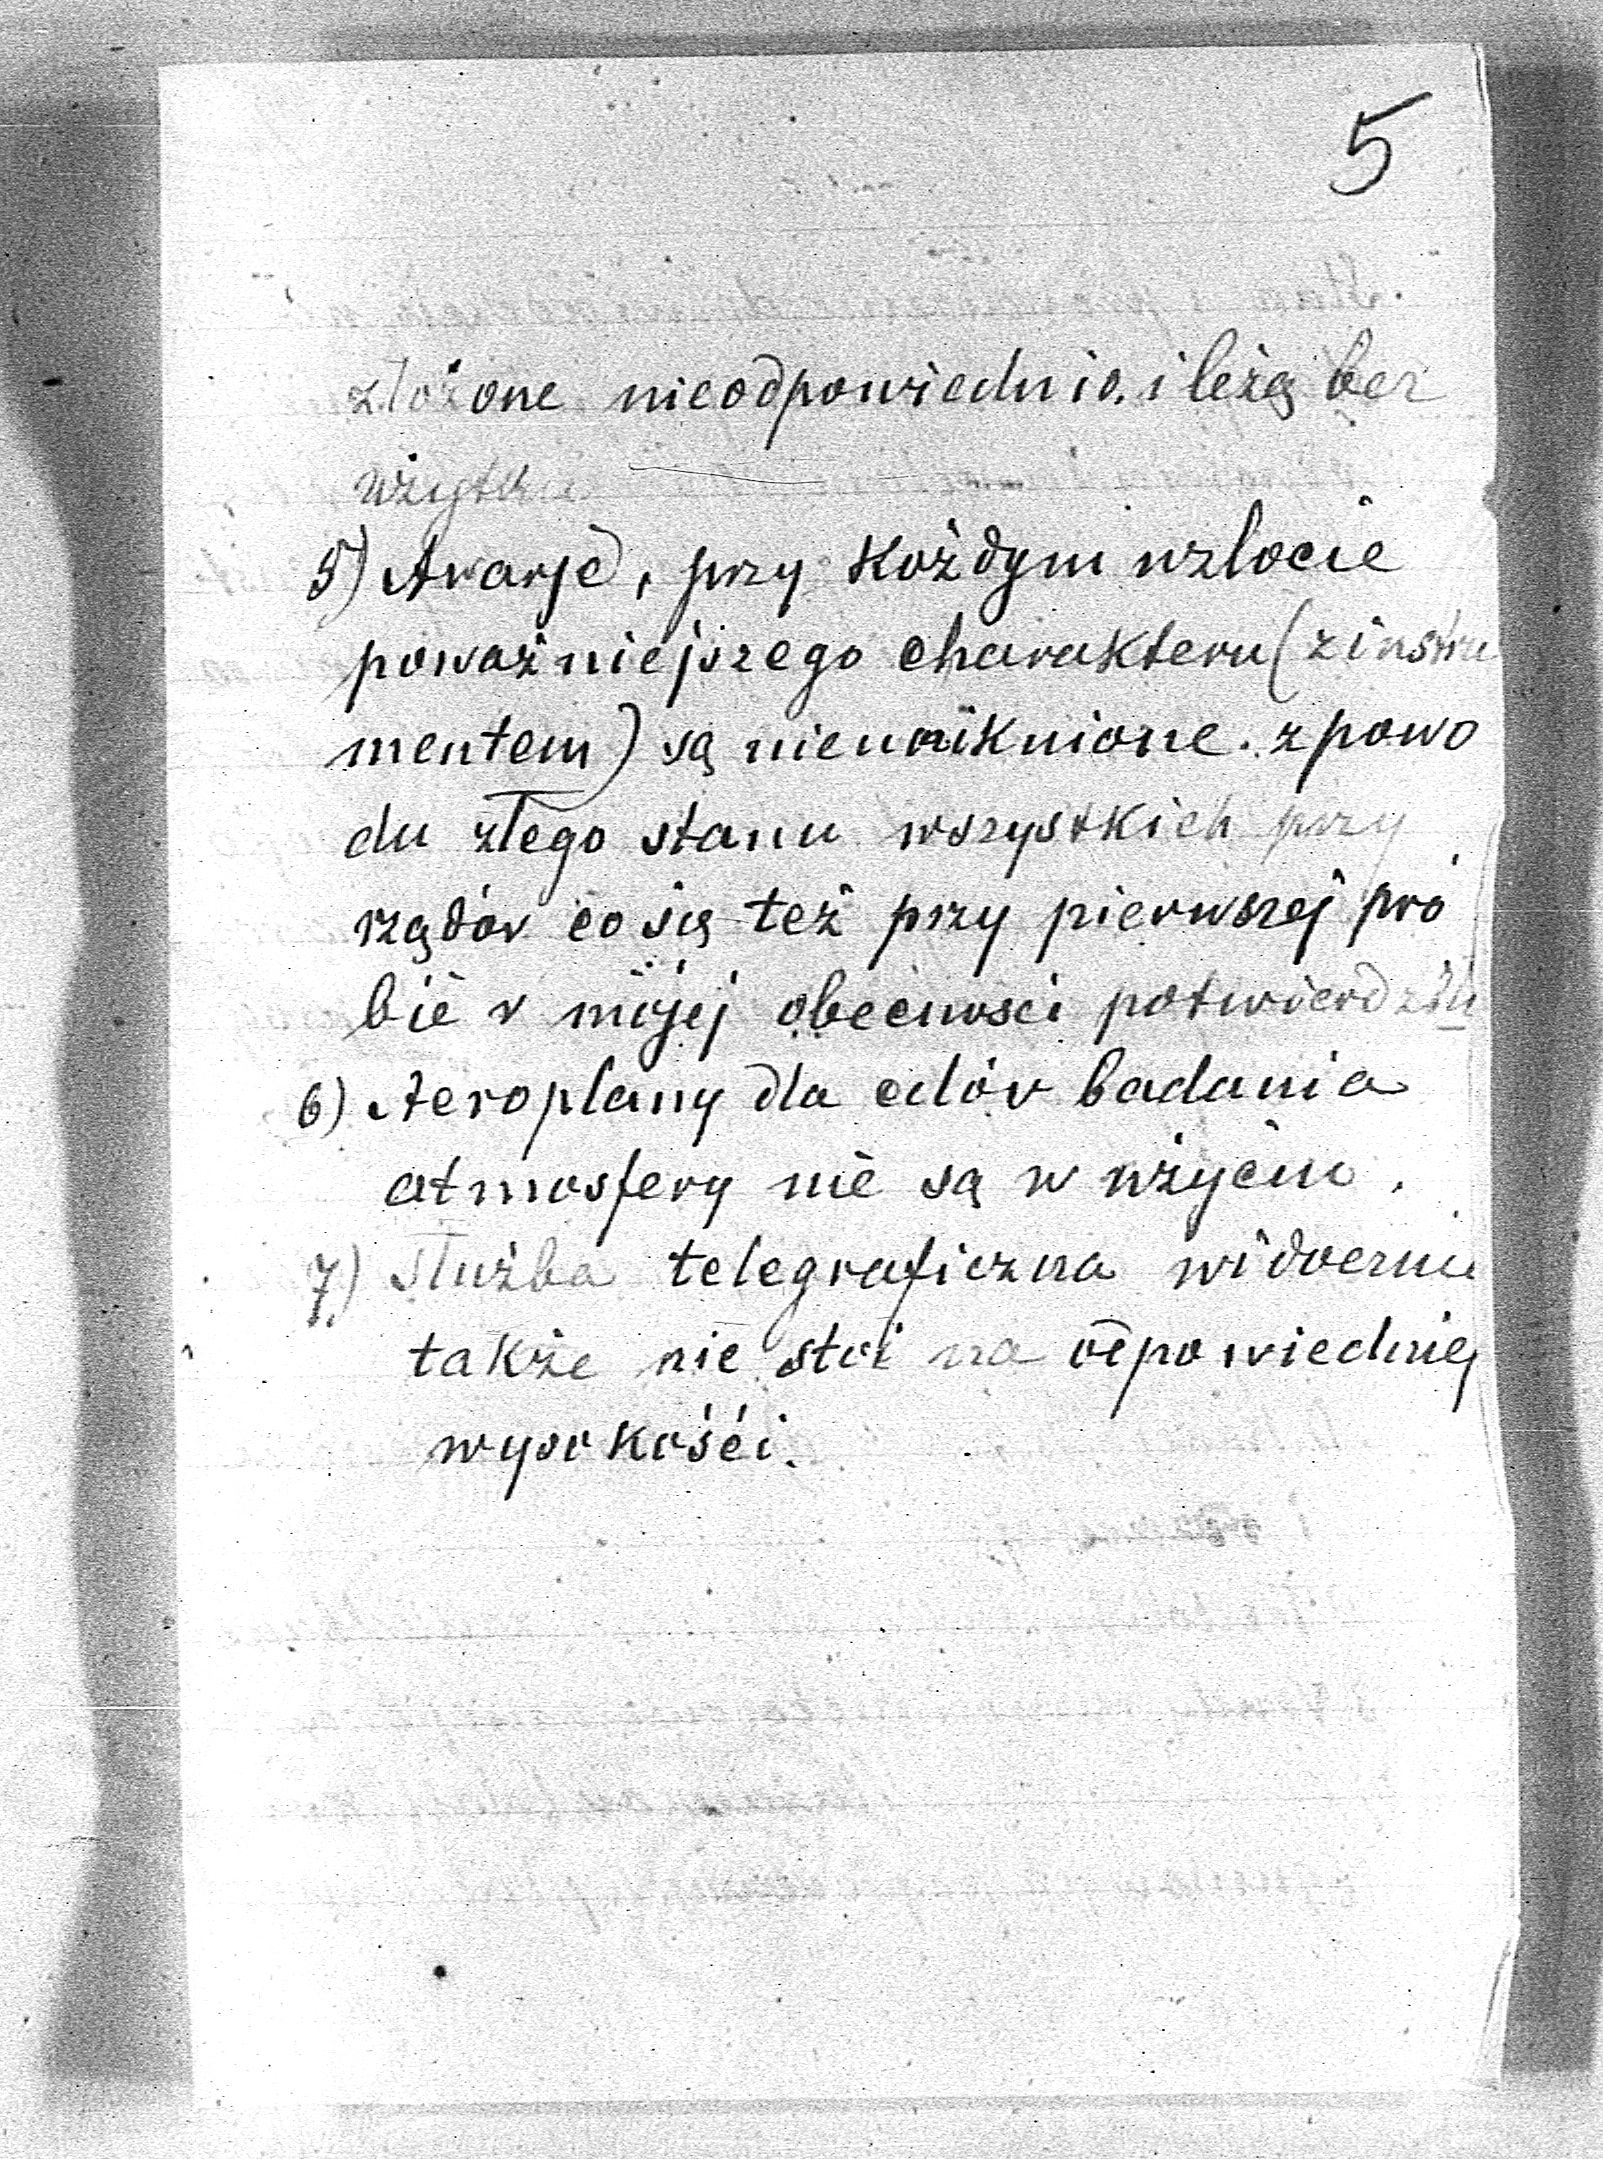 5
złożone nieodpowiednio i leżą bez
użytku
5) Awarje, przy każdym wzlocie
poważniejszego charakteru (z instru
mentem) są nieuniknione. z powo
du złego stanu wszystkich przy
rządów co się też przy pierwszej pró
bie w mojej obecności potwierdziło
6) Aeroplany dla celów badania
atmosfery nie są w użyciu.
7) Służba telegraficzna widocznie
także nie stoi na odpowiedniej
wysokości.